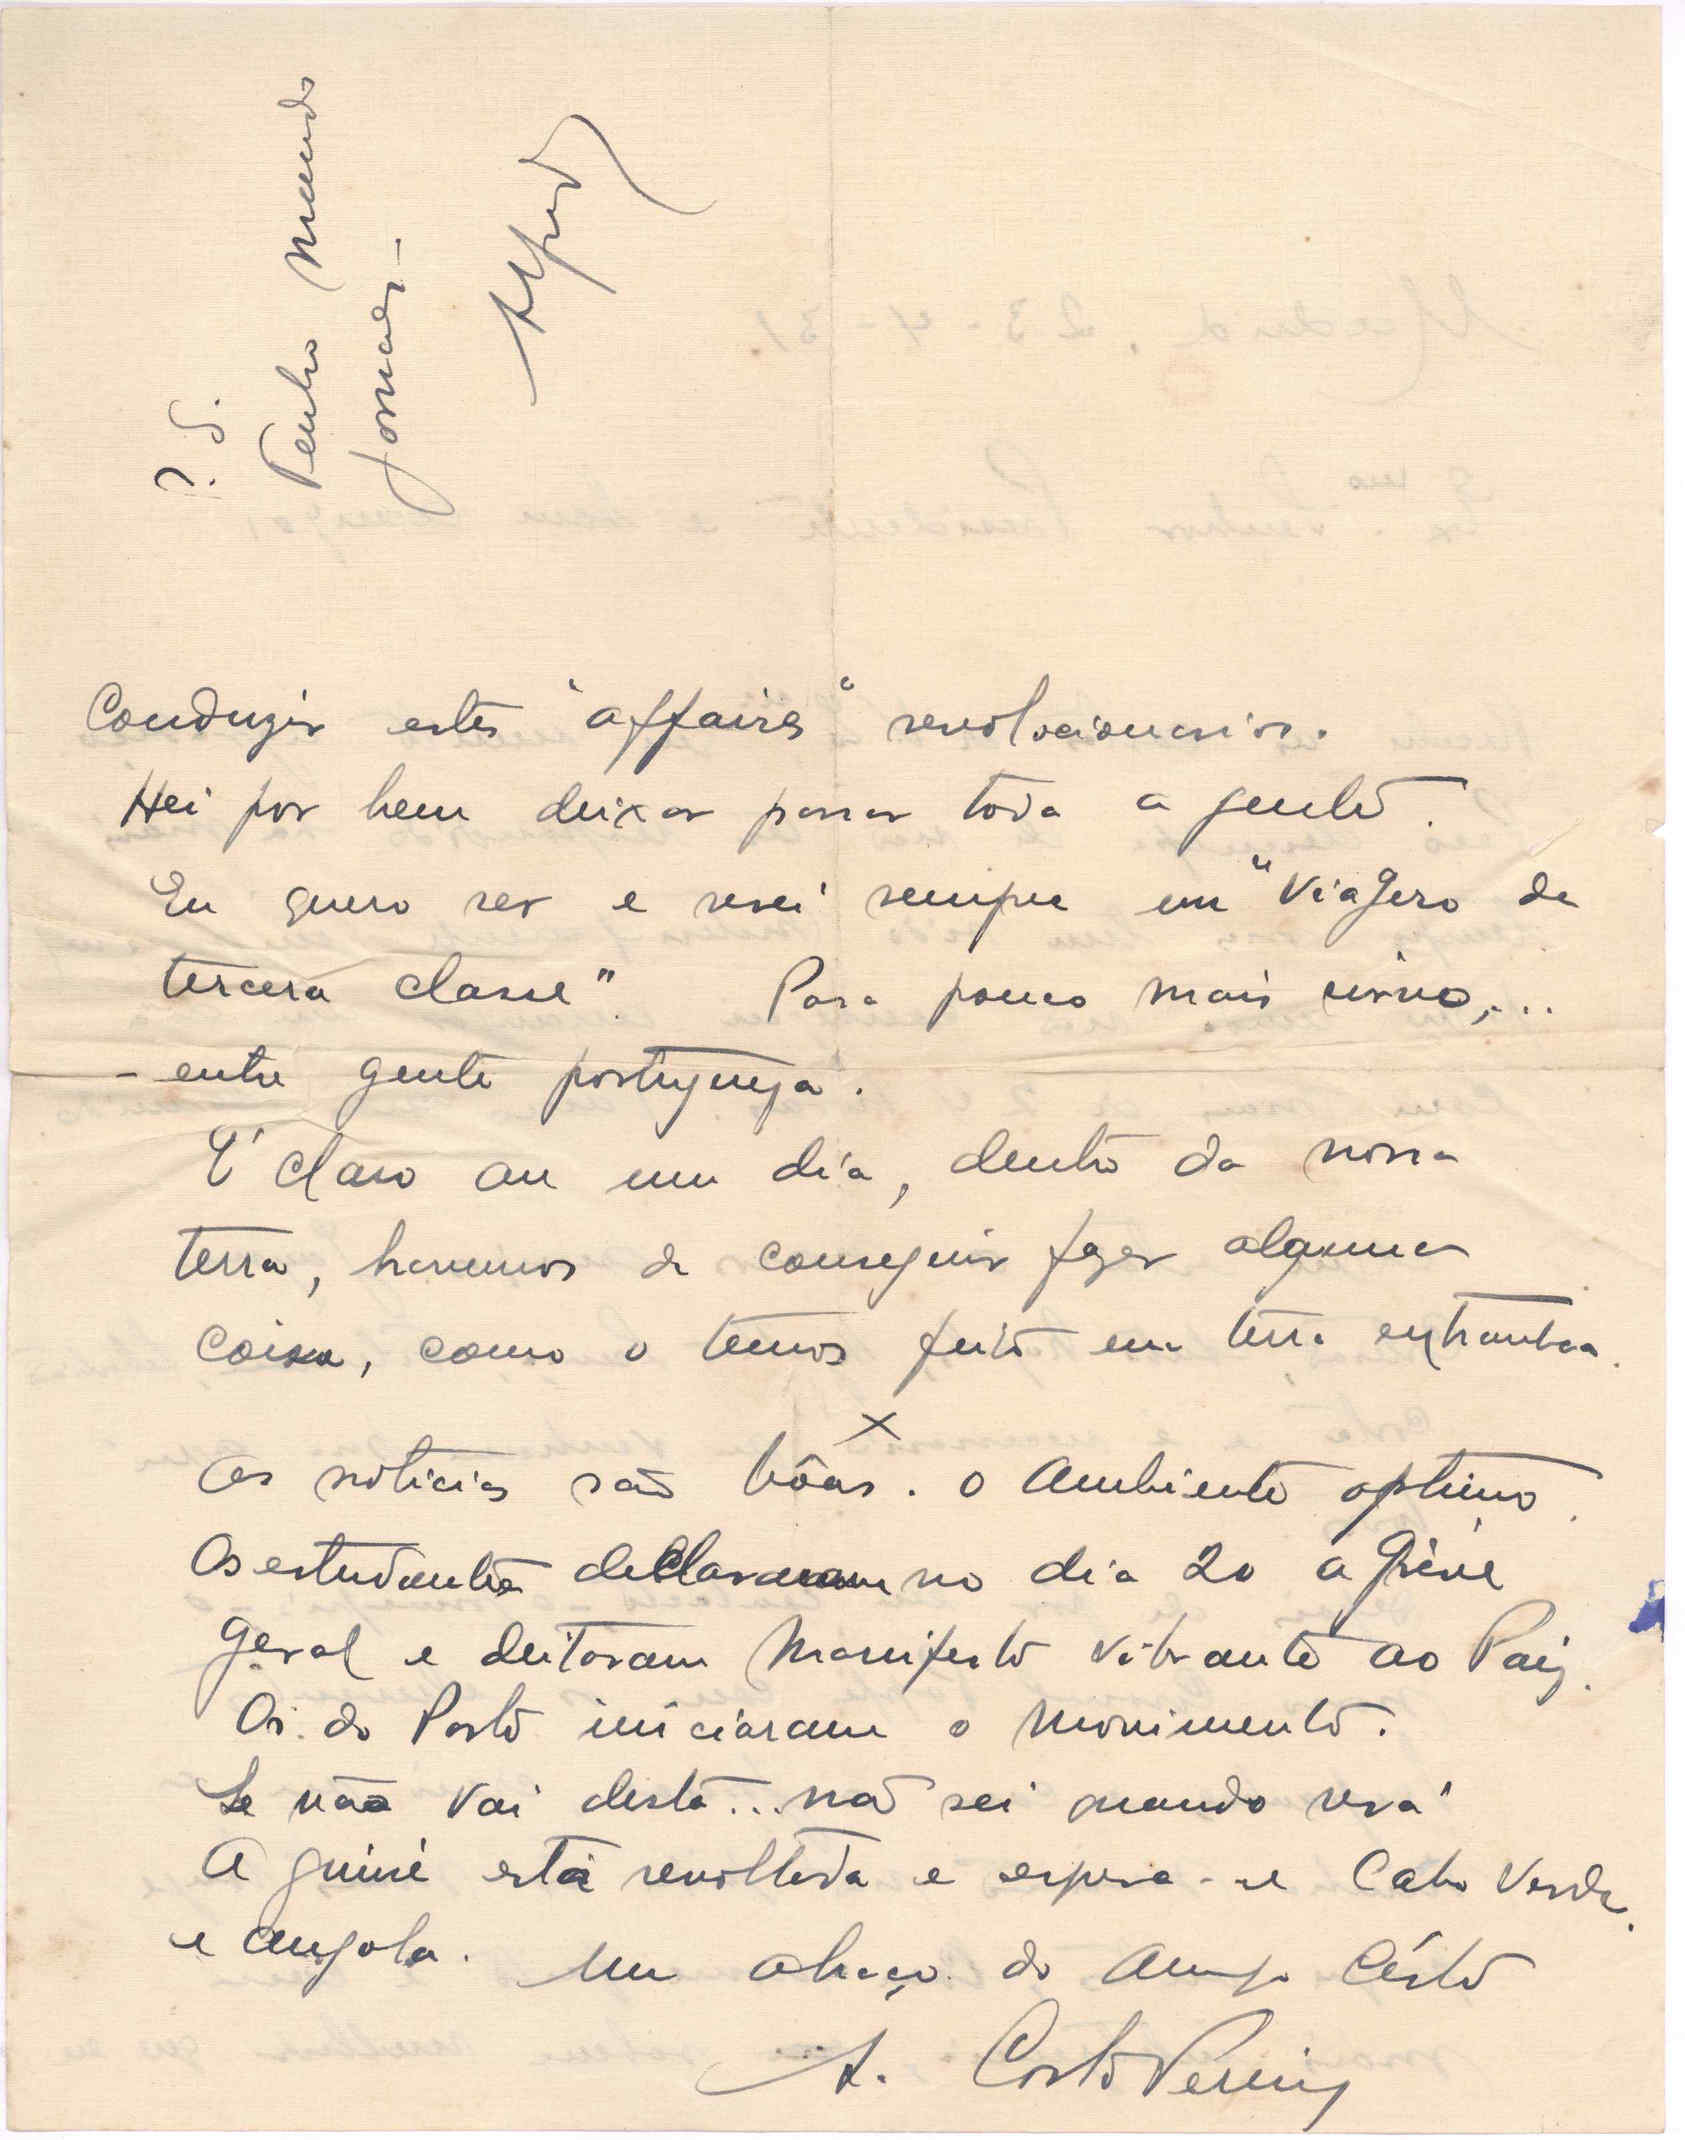 Conduzir estes "affaires" revolucionarios.
Hei por bem deixar passar toda a gente.
Eu quero ser e serei sempre um "Viagero de
tercera classe". Para pouco mais sirvo,...
- entre gente portugueza.
É claro que um dia, dentro da nossa
terra, havemos de conseguir fazer alguma
coisa, como o temos feito em terra extranha.
X
As noticias são bôas. O ambiente optimo.
Os estudantes declararam no dia 20 a grève
geral e deitaram manifesto vibrante ao Paiz.
Os do Porto iniciaram o movimento.
Se não vai desta... não sei quando será
A Guiné está revoltada e espera-se Cabo Verde
e Angola.
Um abraço do amigo Cérto
A. Corto
P.S.
Tenho mandado
jornaes -
Alfredo